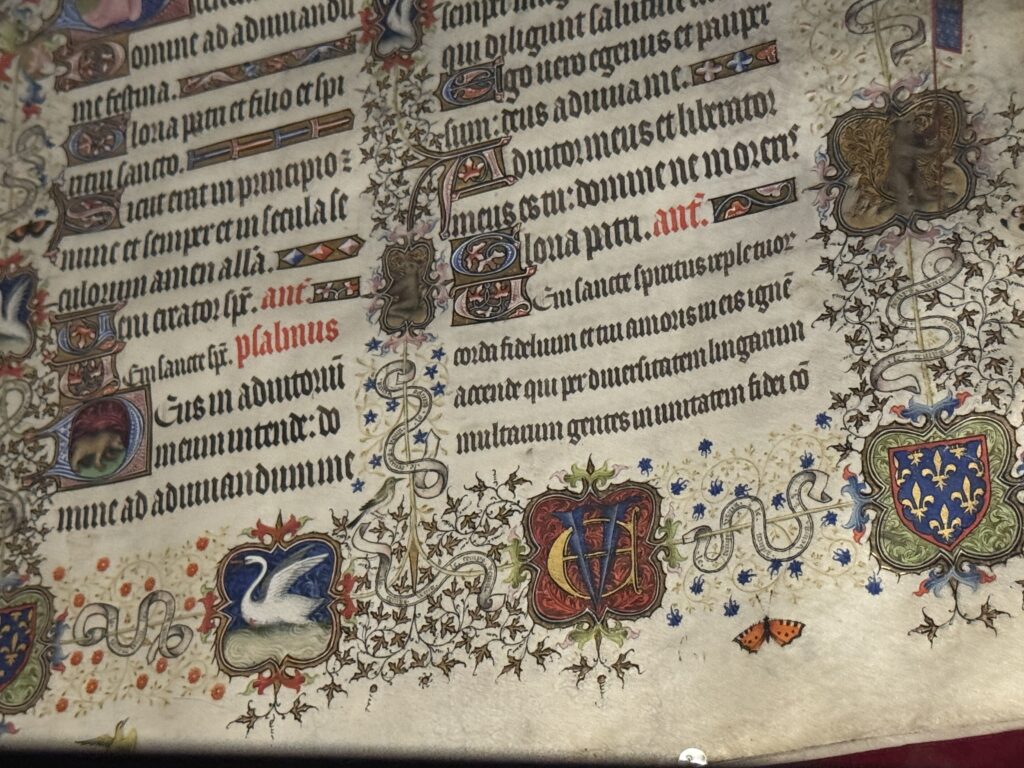 omine ad adiuuandu
me festina.
loria patri et filio et spi
ritui sancto.
icut erat in principio z
nunc et semper et in secula se
culorum amen alla.
eni creator sps. ant.
Eni sancte sps. psalmus
Eus in adiutoriu
meum intende: do
mine ad adiuuandum me
semper mag
qui diligunt salutare
Ego uero egenus et pauper
sum: deus adiuua me.
Adiutor meus et liberator
meus es tu: domine ne moreris
Gloria patri. ant.
Eni sancte spiritus reple tuor
corda fidelium et tui amoris in eis igne
accende qui per diuersitatem linguarum
multarum gentes in unitatem fidei co
EV